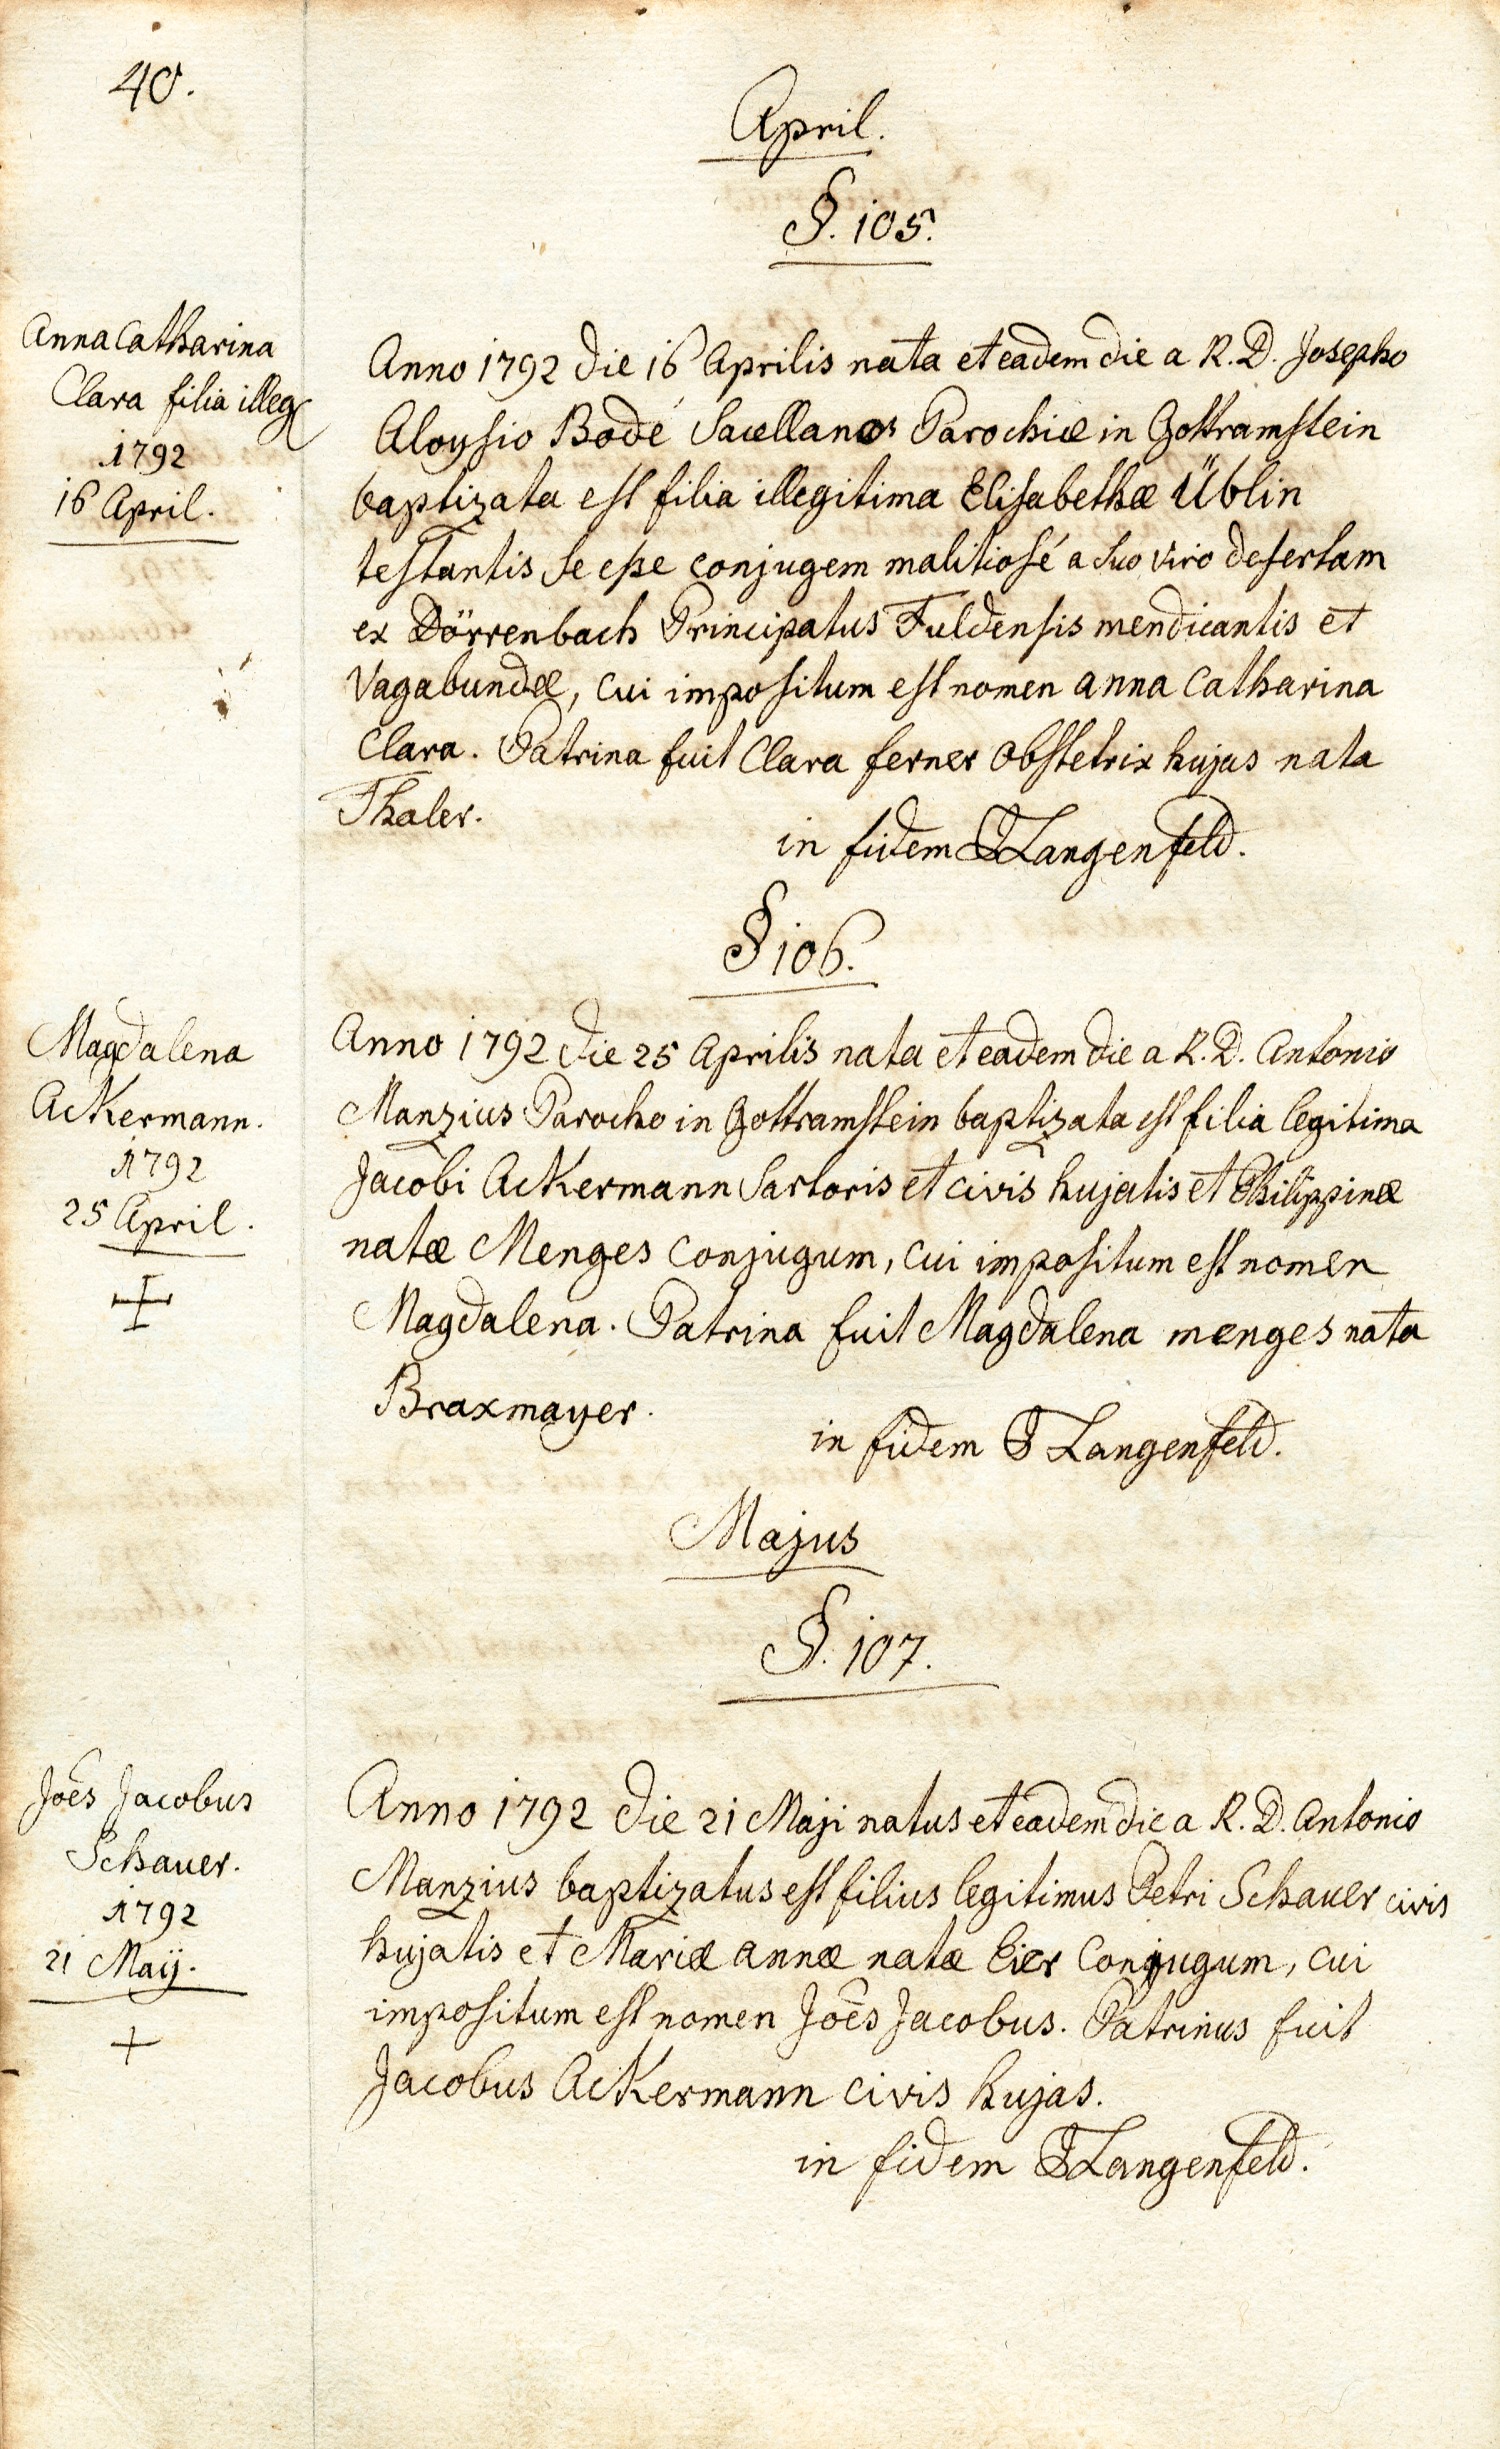 40.
April.
§. 105.
Anna Catharina
Clara filia illeg
1792
16 April.
Anno 1792 die 16 Aprilis nata et eadem die a R. D. Josepho
Aloysio Bodé Sacellano Parochiæ in Gottramstein
baptizata est filia illegitima Elisabethæ Üblin
testantis se esse conjugem malitiosé a suo viro desertam
ex Dörrenbach Principatus Fuldensis mendicantis et
Vagabundæ, cui impositum est nomen anna Catharina
Clara. Patrina fuit Clara ferner obstetrix hujas nata
Thaler.
in fidem T Langenfeld.
§ 106.
Magdalena
Ackermann.
1792
25 April.
Anno 1792 die 25 Aprilis nata et eadem die a R. D. Antonio
Manzius Parocho in Gottramstein baptizata est filia legitima
Jacobi Ackermann Sartoris et civis hujatis et Philippinæ
natæ Menges conjugum, cui impositum est nomen
Magdalena. Patrina fuit Magdalena menges nata
Braxmayer.
in fidem T Langenfeld.
Majus
§. 107.
Joēs Jacobus
Schauer.
1792
21 Maij.
Anno 1792 die 21 Maji natus et eadem die a R. D. Antonio
Manzius baptizatus est filius legitimus Petri Schauer civis
hujatis et Mariæ annæ natæ Eier Conjugum, cui
impositum est nomen Joēs Jacobus. Patrinus fuit
Jacobus Ackermann civis hujas.
in fidem T Langenfeld.